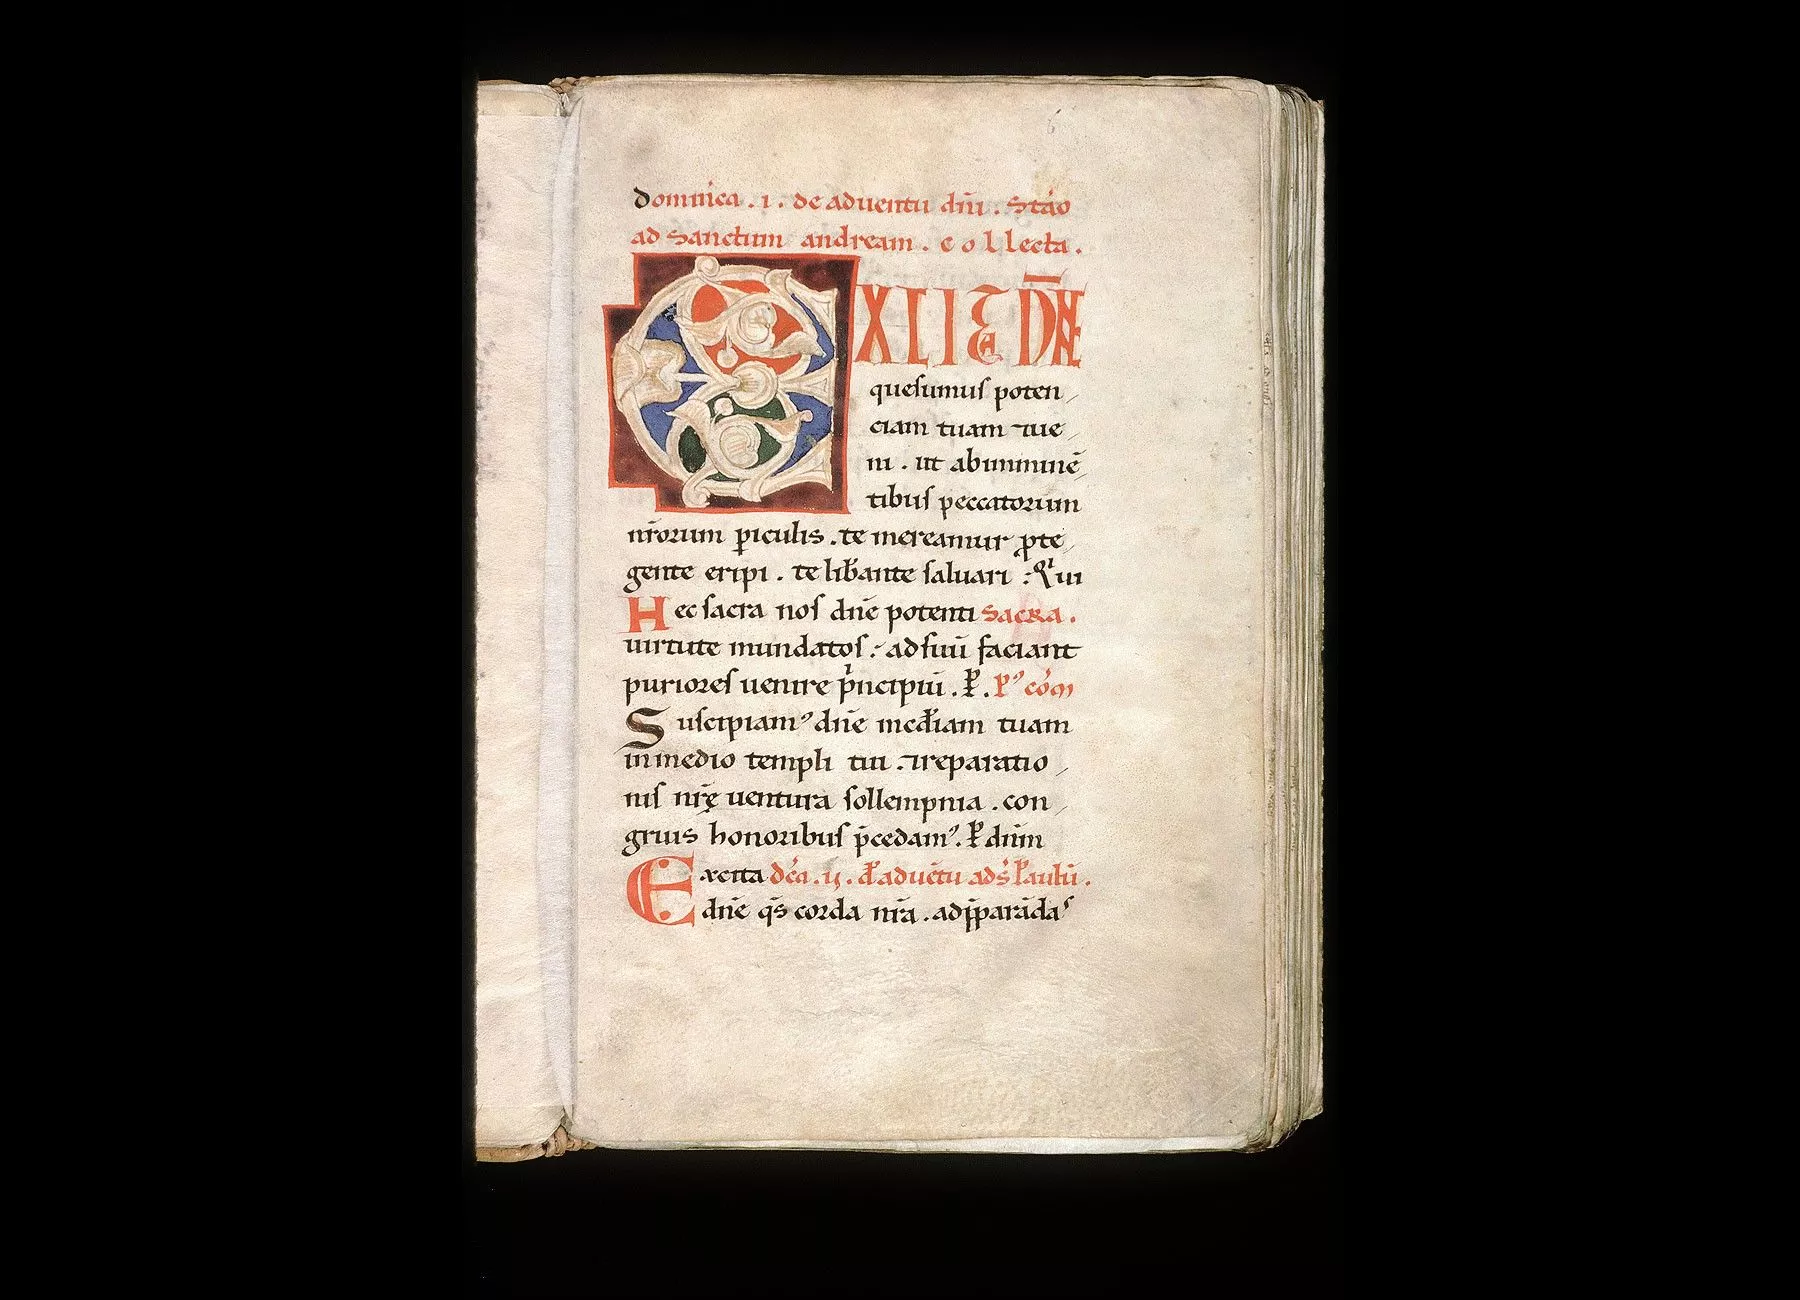 domnica . i . de aduentu dñi . Stão
ad Sanctum andream . collecta .
EXCITA DÑE
quesumus poten
ciam tuam ⁊ ue
ni . ut abimminē
tibus peccatorum
nr̄orum ꝑiculis . te mereamur ꝓte
gente eripi . te lib̄ante saluari : Qui
Hec sacra nos dñe potenti Sacra .
uirtute mundatos : adsuū faciant
puriores uenire pͥncipiū . P̄ . Pꝰ cōm
Suscipiamꝰ dñe mc̄diam tuam
inmedio templi tui . ⁊ reparatio
nis nr̄ę uentura sollempnia . con
gruis honoribus p̄cedamꝰ . P̄ dnm̄
Excita dc̄a . ij . d̄ aduētu ad s̄ paulū .
dñe qs̄ corda nr̄a . adp̄parāda